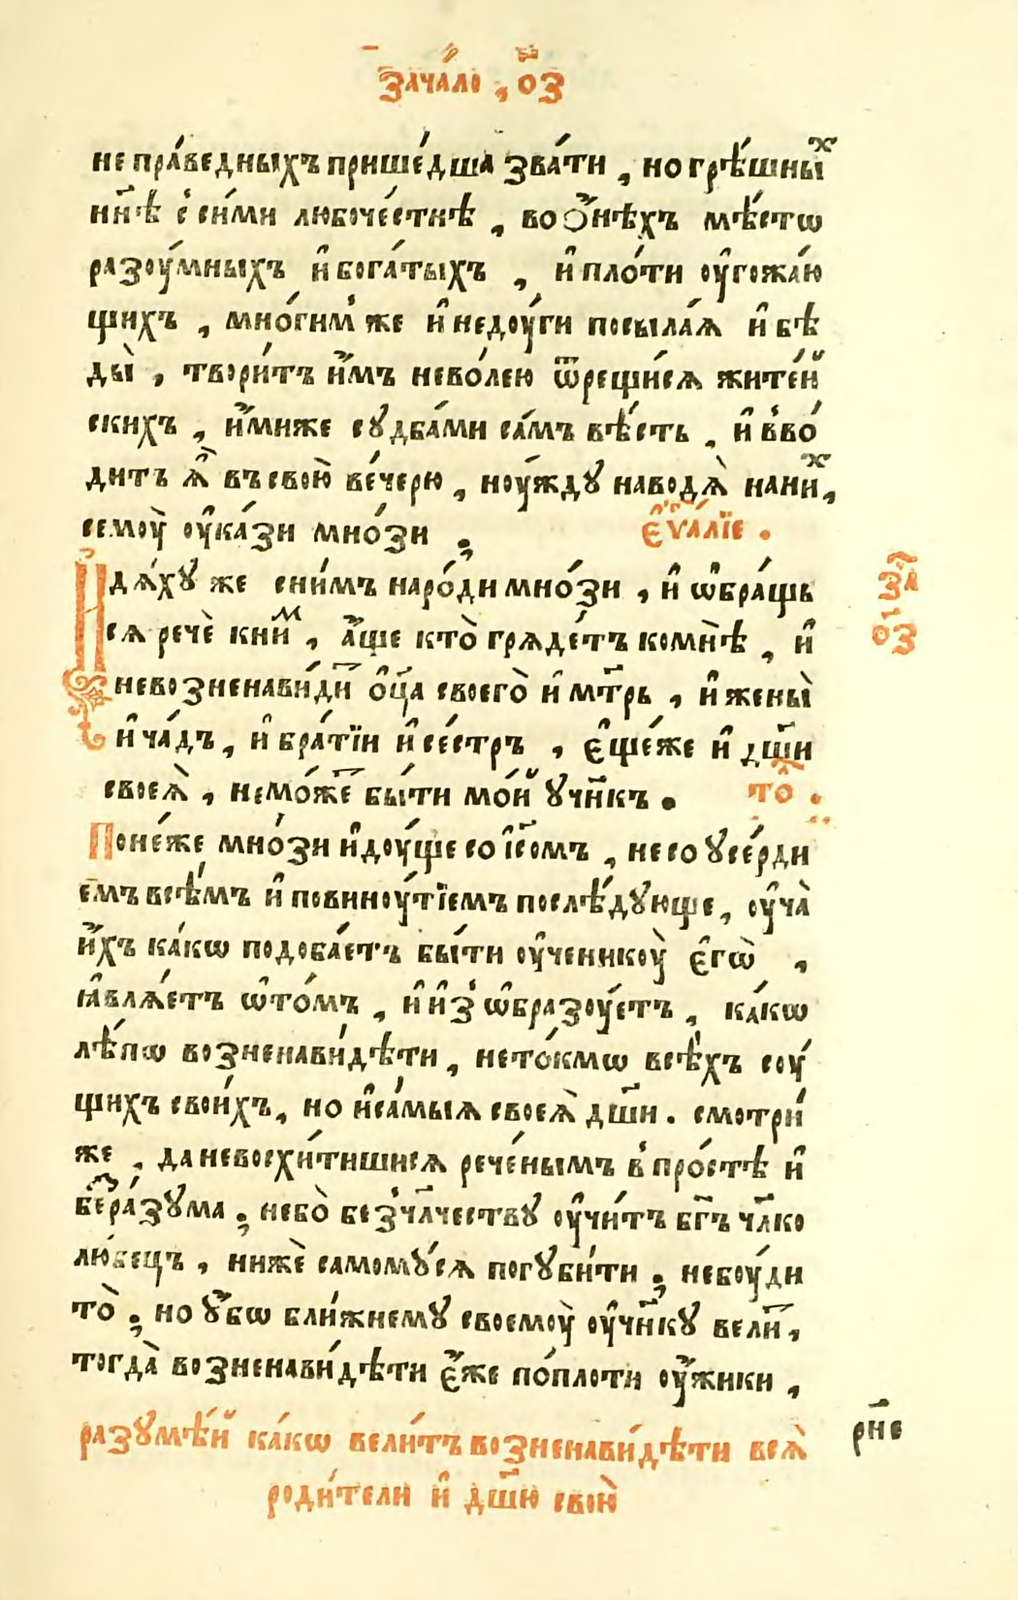 Зача́ло , о҃з
не пра́ведныхъ прише́дша зва́ти , но грѣ́шныⷯ
нн҃ѣ с си́ми любоче́стнѣ , во ѻ҆́нѣхъ мѣ́стѡ
разоу́мныхъ и҆ бога́тыхъ , и҆ пло́ти оу҆гожа́ю
щихъ , мно́гим же и҆ недоу́ги посыла́ѧ и҆ бѣ
ды̀ , твори́тъ и҆̀мъ нево́лею ѿрещи́сѧ жите́й
скихъ , и҆́миже судба́ми са́мъ вѣ́сть , и҆ вво́
дитъ ѧ҆̀ въ свою̀ ве́черю , ноу́жду наводѧ̀ на ниⷯ ,
семоу̀ оу҆ка́зи мно́зи ; Є҆ѵⷢ҇а́лїе .
Идѧ́ху же сни́мъ наро́ди мно́зи , и҆ ѡ҆бра́щь
сѧ речѐ к ниⷨ , а҆́ще кто̀ грѧде́тъ ко мнѣ̀ , и҆
за҃
о҃з
не возненави́диⷮ ѻ҆ц҃а̀ своего̀ и҆ мт҃рь , и҆ жены̀
и҆ ча́дъ , и҆ бра́тїи и҆ се́стръ , є҆ще́же и҆ дш҃и
своеѧ̀ , не мо́жеⷮ бы́ти мо́й учн҃къ . то҆ .
Поне́же мно́зи и҆доу́ще со і҆с҃омъ , не со усе́рди
емъ всѣ́мъ и҆ повиноу́тїемъ послѣ́дующе , оу҆ча̀
и҆́хъ ка́кѡ подоба́етъ бы́ти оу҆ченикоу̀ є҆гѡ̀ ,
ꙗ҆влѧ́етъ ѡ҆ то́мъ , и҆ и҆з ѡ҆бразоу́етъ , ка́кѡ
лѣ́пѡ возненави́дѣти , не то́кмѡ всѣ́хъ соу́
щихъ свои́хъ , но и҆ са́мыѧ своеѧ̀ дш҃и . смотри́
же , да не восхи́тишисѧ рече́нымъ в про́стѣ и҆
беⷥ ра́зума ; не бо̀ без чл҃честву оу҆чи́тъ бг҃ъ чл҃ко
лю́бецъ , нижѐ самому́сѧ погуби́ти ; не боу́ди
то̀ ; но у҆́бѡ бли́жнему своемоу̀ оу҆чн҃ку вели́ⷮ ,
тогда̀ возненави́дѣти є҆́же по́плоти оу҆́жики ,
разумѣ́й ка́кѡ вели́тъ возненави́дѣти всѧ̀
роди́тели и҆ дш҃ю свою̀
рн҃е